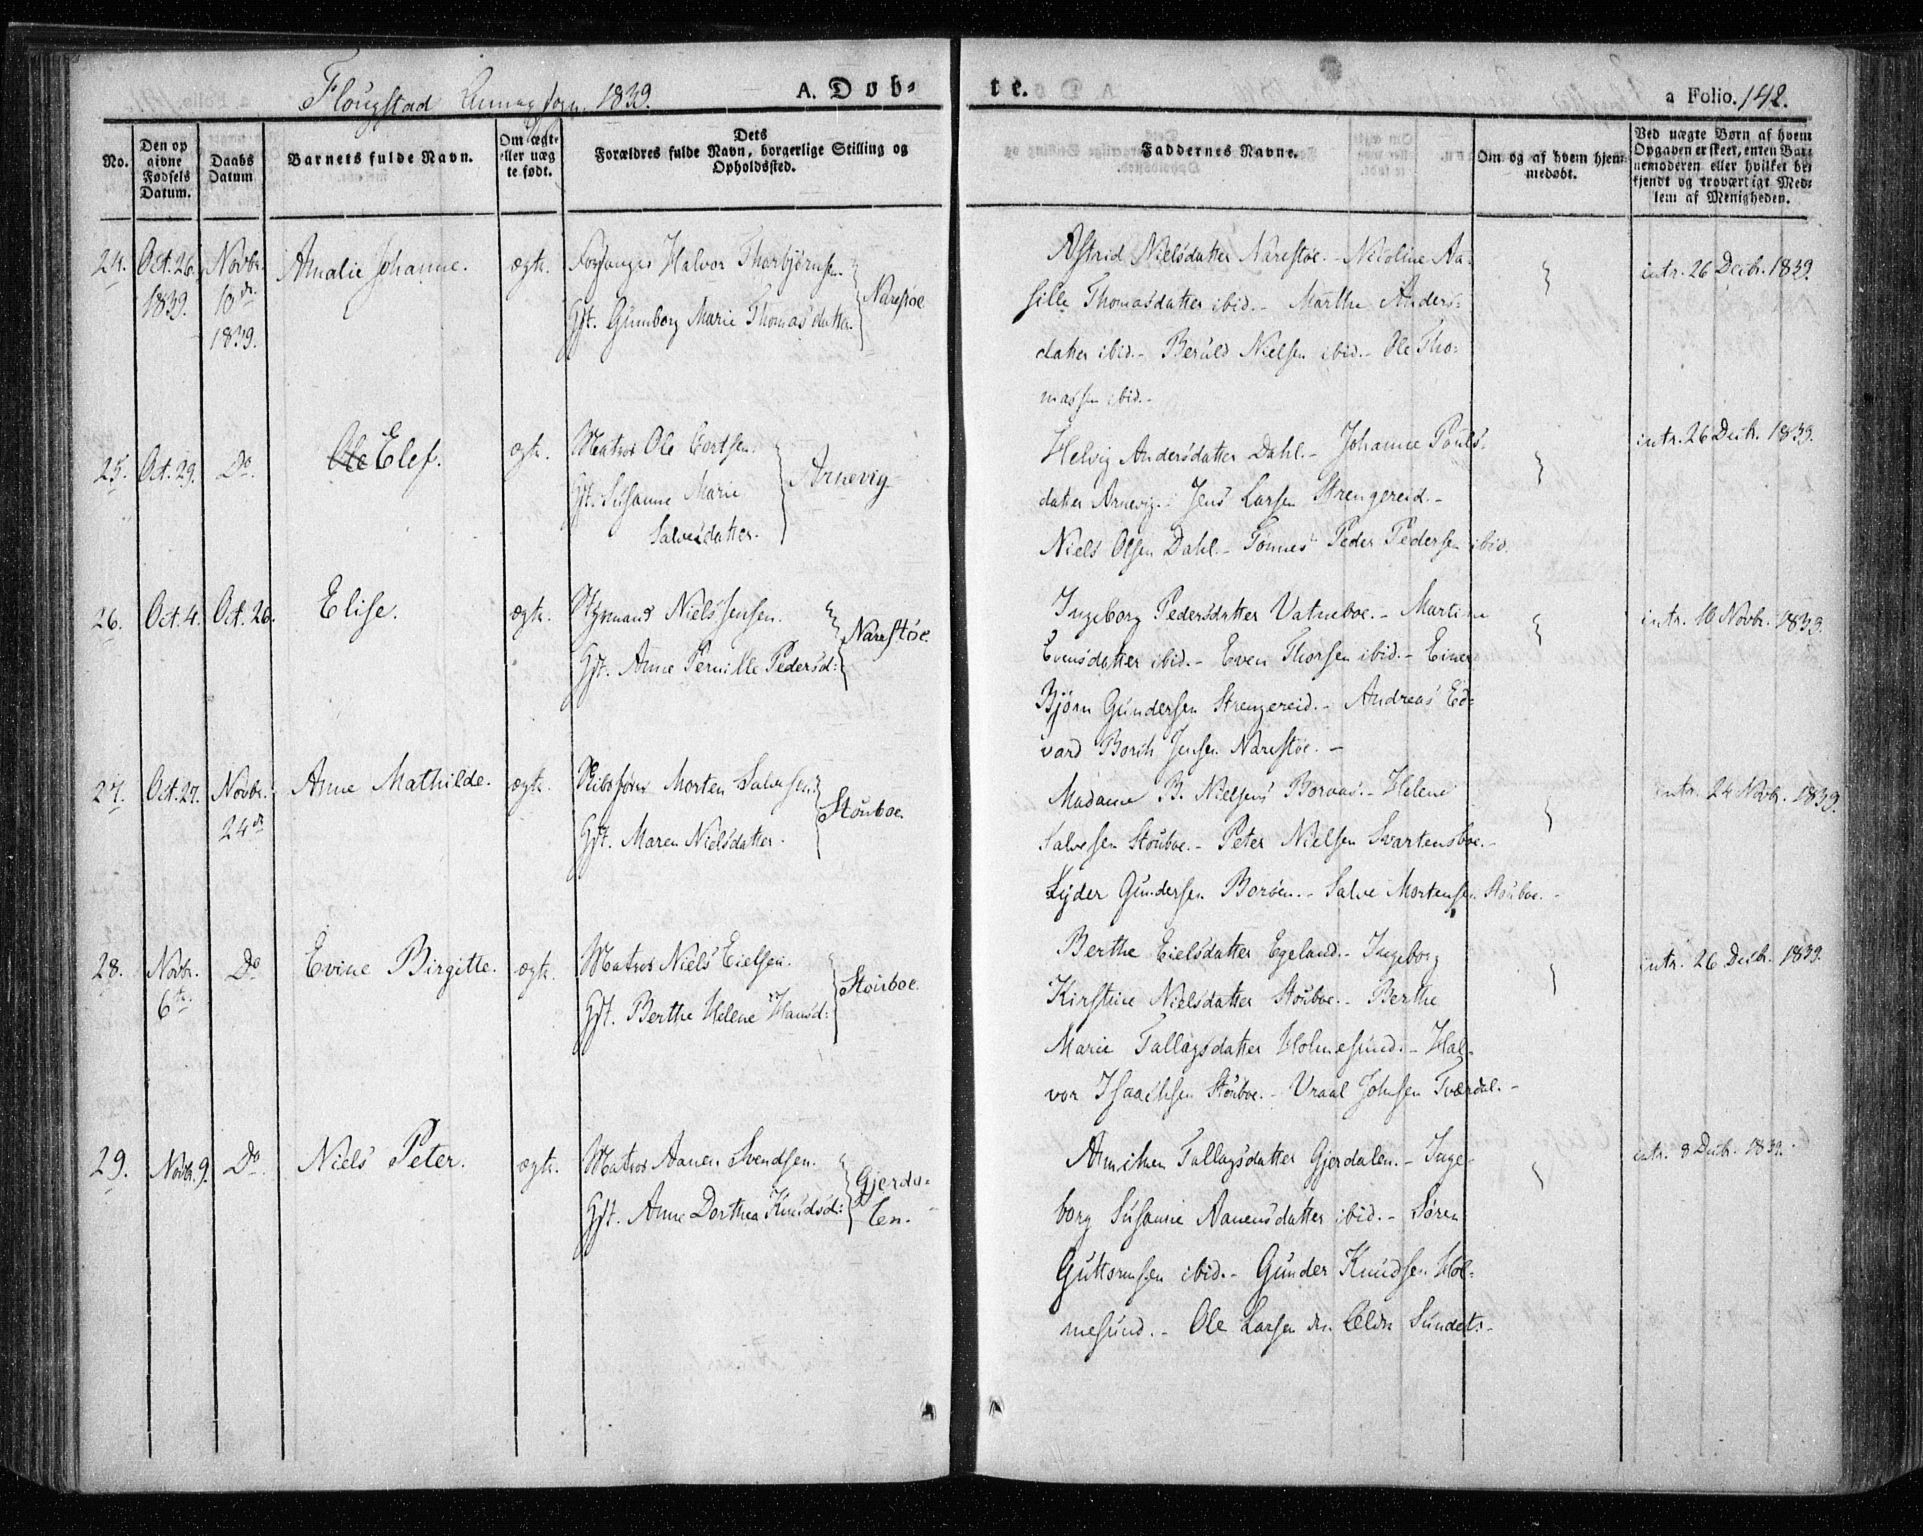 Flougstad Annexsogn 1839.
A. Døb-
te.
a Folio. 142.
No.
Den op
givne
Fødsels
Datum.
Daabs
Datum
Barnets fulde Navn.
Om ægte
eller uæg
te født.
Dets
Forældres fulde Navn, borgerlige Stilling og
Opholdssted.
Faddernes Navne.
Om og af hvem hjem-
medøbt.
Ved uægte Børn af hvem
Opgaven er skeet, enten Bar-
nemoderen eller hvilket be-
kjendt og troværtigt Med-
lem af Menigheden.
24. Oct. 26. 1839. Novbr. 10de 1839. Amalie Johanne. ægte.
Halvor Thorbjørnsen
Hst. Gunborg Marie Thomasdatter. Narestøe
Astrid Nielsdatter Narestøe. - Nicoline Aa-
sille Thomasdatter ibid. - Marthe Anders-
datter ibid. - Beruld Nielsen ibid. - Ole Tho-
massen ibid. -
intr. 26 Decbr. 1839.
25. Oct. 29. Do. Ole Elef. ægte.
Matros Ole Evertsen.
Hst. Susanne Marie
Salvesdatter. Arnevig
Helvig Andersdatter Dahl. - Johanne Pouls-
datter Arnevig. - Jens Larsen Strengereid. -
Niels Olsen Dahl. - Tønnes Peder Pedersen ibid.
intr. 26 Decbr. 1839.
26. Oct. 4. Oct. 20. Elise. ægte.
Styrmand Niels Jensen.
Hst. Anne Pernille Pedersd: Narestøe.
Ingeborg Pedersdatter Vatneboe. - Martine
Evensdatter ibid. - Even Thorsen ibid. - Einer
Bjørn Gundersen Strengereid. - Andreas Ed-
vard Borch Jensen Narestøe. -
intr. 10 Novbr. 1839.
27. Oct. 27. Novbr. 24de Anne Mathilde. ægte.
Skibsfører Morten Salvesen.
Hst. Maren Nielsdatter. Stouboe.
Madame B. Nielsens Boraas. - Helene
Salvesen Stouboe. - Peter Nielsen Svartensboe. -
Lyder Gundersen Borøen. - Salve Mortensen Stouboe. -
intr. 24 Novbr. 1839.
28. Novbr. 6te. Do Evine Birgitte. ægte.
Matros Niels Eielsen.
Hst. Berthe Helene Hansd: Stouboe
Berthe Eielsdatter Egeland. - Ingeborg
Kirstine Nielsdatter Stouboe. - Berthe
Marie Tallagsdatter Holmesund. - Hal-
vor Isaachsen Stouboe. - Vraal Johnsen Tværdal. -
intr. 26 Decbr. 1839.
29. Novbr. 9. Do. Niels Peter. ægte.
Matros Aanen Svendsen.
Hst. Anne Dorthea Knudsd: Gjerda-
len.
Annichen Tallagsdatter Gjerdalen. - Inge-
borg Susanne Aanensdatter ibid. - Søren
Guttormsen ibid. - Gunder Knudsen Hol-
mesund. - Ole Larsen den Ældre Sundet. -
intr. 8 Decbr. 1839.